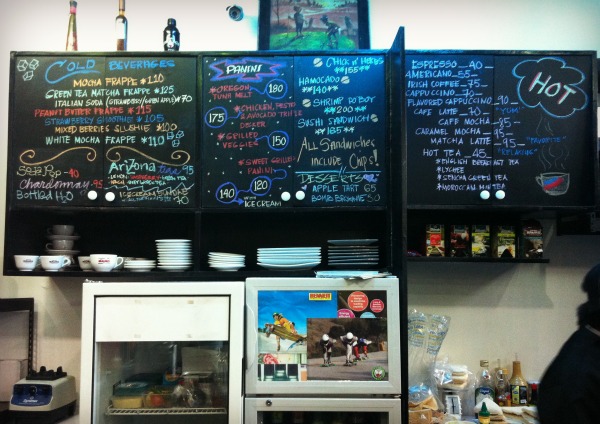 COLD BEVERAGES
MOCHA FRAPPE *110
GREEN TEA MATCHA FRAPPE *125
ITALIAN SODA (STRAWBERRY/GREEN APPLE) 70
PEANUT BUTTER FRAPPE *135
STRAWBERRY SMOOTHIE *105
MIXED BERRIES SLUSHIE 100
WHITE MOCHA FRAPPE *110
SODA POP - 40
Chardonnay - 95
Bottled H2O
ARIZONA tea 95
ICE CREAM
PANINI
*OREGON TUNA MELT 180
175 *CHICKEN, PESTO & AVOCADO TRIPLE DECKER
*GRILLED VEGGIES 150
*SWEET GRILLED PANINI
140 120
WITH ICE CREAM
*155**
HAMOCADO
*140**
*SHRIMP PO'BOY
*200
SUSHI SANDWICH
*185**
ALL SANDWICHES
INCLUDE CHIPS!
DESSERTS
APPLE TART 65
BOMB BROWNIE 50
HOT
ESPRESSO - 40
AMERICANO - 55
IRISH COFFEE - 75
CAPPUCCINO - 70
FLAVORED CAPPUCCINO - 90
CAFE LATTE - 70
CAFE MOCHA 85
CARAMEL MOCHA 95
MATCHA LATTE 95
HOT TEA 45
*ENGLISH BREAKFAST TEA
*LYCHEE
*SENCHA GREEN TEA
*MOROCCAN MINT TEA